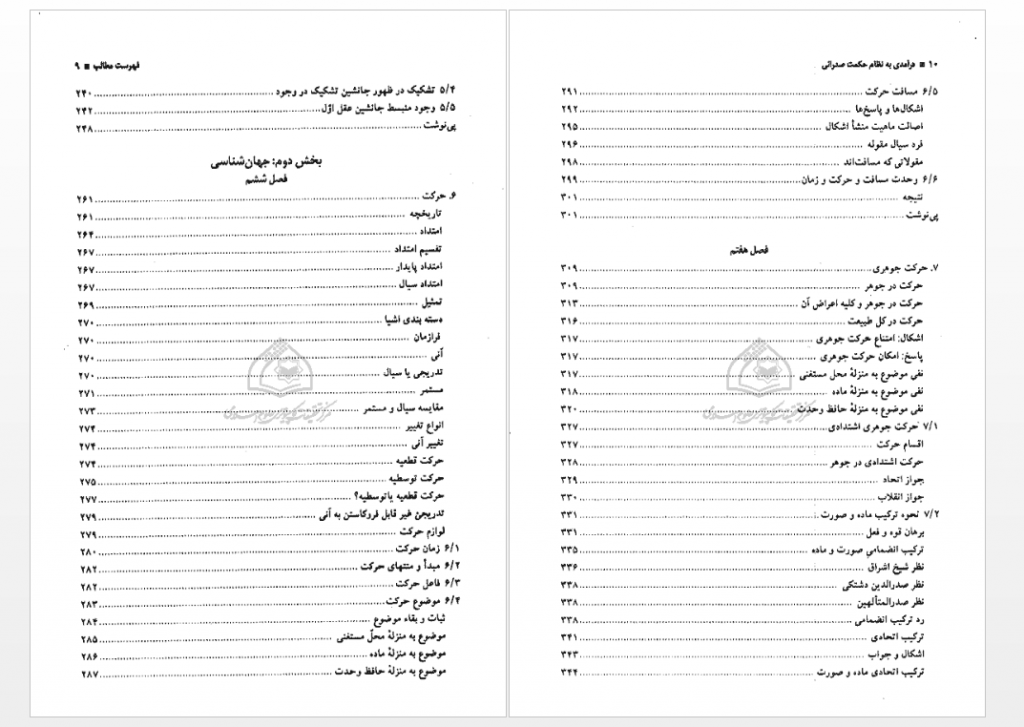 فهرست مطالب ■ ۹
۵/۴ تشکیک در ظهور جانشین تشکیک در وجود ........ ۲۴۰
۵/۵ وجود منبسط جانشین عقل اوّل ........ ۲۴۲
پی‌نوشت ........ ۲۴۸
بخش دوم: جهان‌شناسی
فصل ششم
۶. حرکت ........ ۲۶۱
تاریخچه ........ ۲۶۱
امتداد ........ ۲۶۴
تقسیم امتداد ........ ۲۶۷
امتداد پایدار ........ ۲۶۷
امتداد سیال ........ ۲۶۷
تمثیل ........ ۲۶۹
دسته بندی اشیا ........ ۲۷۰
فرازمان ........ ۲۷۰
آنی ........ ۲۷۰
تدریجی یا سیال ........ ۲۷۰
مستمر ........ ۲۷۱
مقایسه سیال و مستمر ........ ۲۷۳
انواع تغییر ........ ۲۷۴
تغییر آنی ........ ۲۷۴
حرکت قطعیه ........ ۲۷۴
حرکت توسطیه ........ ۲۷۵
حرکت قطعیه یا توسطیه؟ ........ ۲۷۷
تدریجیّ غیر قابل فروکاستن به آنی ........ ۲۷۹
لوازم حرکت ........ ۲۷۹
۶/۱ زمان حرکت ........ ۲۸۰
۶/۲ مبدأ و منتهای حرکت ........ ۲۸۲
۶/۳ فاعل حرکت ........ ۲۸۲
۶/۴ موضوع حرکت ........ ۲۸۳
ثبات و بقاء موضوع ........ ۲۸۴
موضوع به منزلهٔ محلّ مستغنی ........ ۲۸۵
موضوع به منزلهٔ ماده ........ ۲۸۶
موضوع به منزلهٔ حافظ وحدت ........ ۲۸۷
۱۰ ■ درآمدی به نظام حکمت صدرائی
۶/۵ مسافت حرکت ........ ۲۹۱
اشکال‌ها و پاسخ‌ها ........ ۲۹۲
اصالت ماهیت منشأ اشکال ........ ۲۹۵
فرد سیال مقوله ........ ۲۹۶
مقولاتی که مسافت‌اند ........ ۲۹۸
۶/۶ وحدت مسافت و حرکت و زمان ........ ۲۹۹
نتیجه ........ ۳۰۱
پی‌نوشت ........ ۳۰۱
فصل هفتم
۷. حرکت جوهری ........ ۳۰۹
حرکت در جوهر ........ ۳۰۹
حرکت در جوهر و کلیه اعراض آن ........ ۳۱۳
حرکت در کل طبیعت ........ ۳۱۶
اشکال: امتناع حرکت جوهری ........ ۳۱۷
پاسخ: امکان حرکت جوهری ........ ۳۱۷
نفی موضوع به منزلهٔ محل مستغنی ........ ۳۱۷
نفی موضوع به منزلهٔ ماده ........ ۳۱۸
نفی موضوع به منزلهٔ حافظ وحدت ........ ۳۲۰
۷/۱ حرکت جوهری اشتدادی ........ ۳۲۷
اقسام حرکت ........ ۳۲۷
حرکت اشتدادی در جوهر ........ ۳۲۸
جواز اتحاد ........ ۳۲۹
جواز انقلاب ........ ۳۳۰
۷/۲ نحوه ترکیب ماده و صورت ........ ۳۳۱
برهان قوه و فعل ........ ۳۳۱
ترکیب انضمامی صورت و ماده ........ ۳۳۵
نظر شیخ اشراق ........ ۳۳۶
نظر صدرالدین دشتکی ........ ۳۳۸
نظر صدرالمتألهین ........ ۳۳۸
رد ترکیب انضمامی ........ ۳۳۸
ترکیب اتحادی ........ ۳۴۱
اشکال و جواب ........ ۳۴۳
ترکیب اتحادی ماده و صورت ........ ۳۴۴